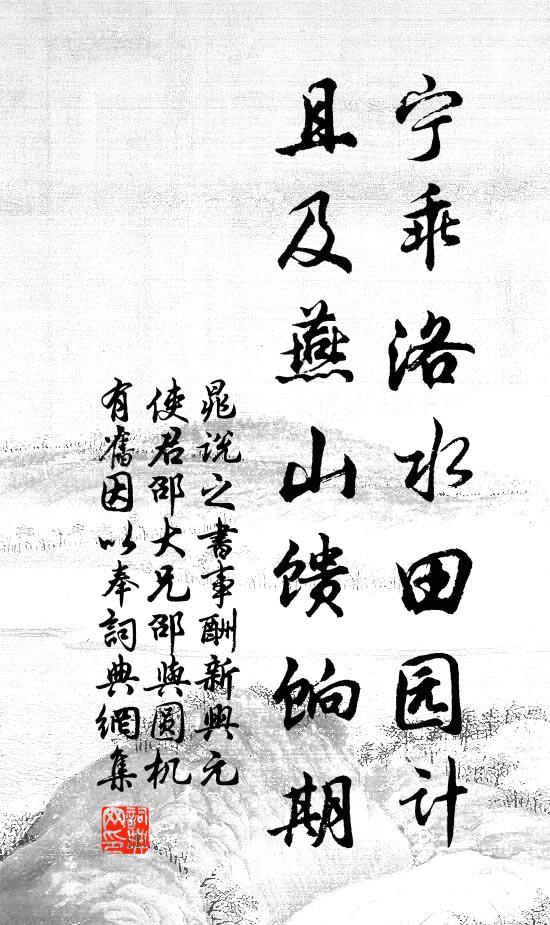 宁乖洛水田园计
且及燕山馈饷期
晁说之书事酬新興元
使君邵大兄邵與圓机
有舊因以奉詞典網集